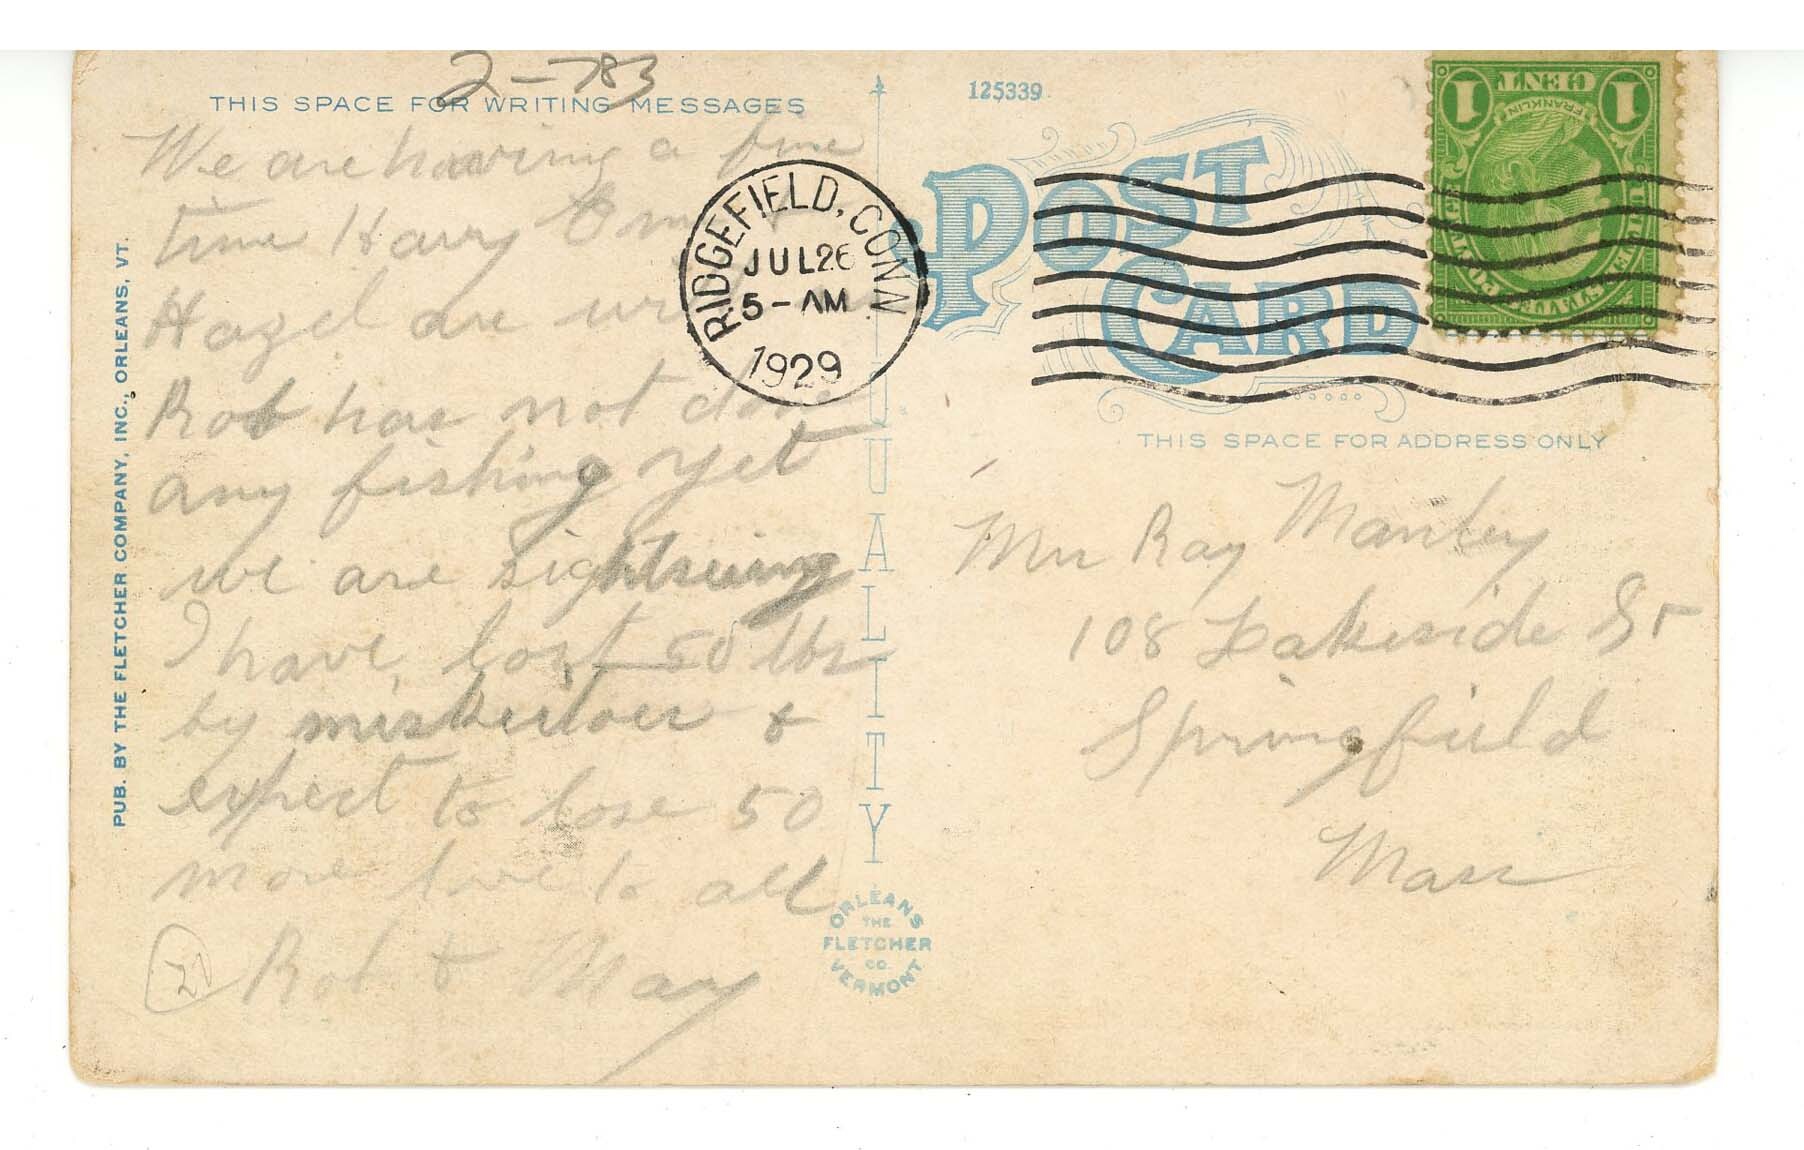 2-783
THIS SPACE FOR WRITING MESSAGES
We are having a fine
time Harry Em
Hazel are
Rob has not done
any fishing yet
we are sightseeing
I have lost 50 lbs
by miskeitoes &
expect to lose 50
more love to all
Rob & May
20
PUB. BY THE FLETCHER COMPANY, INC., ORLEANS, VT.
QUALITY
ORLEANS
THE
FLETCHER
CO.
VERMONT
125339
POST
CARD
RIDGEFIELD, CONN
JUL 26
5-AM
1929
1 CENT 1
FRANKLIN
UNITED STATES POSTAGE
THIS SPACE FOR ADDRESS ONLY
Mrs Ray Manley
108 Lakeside St
Springfield
Mass